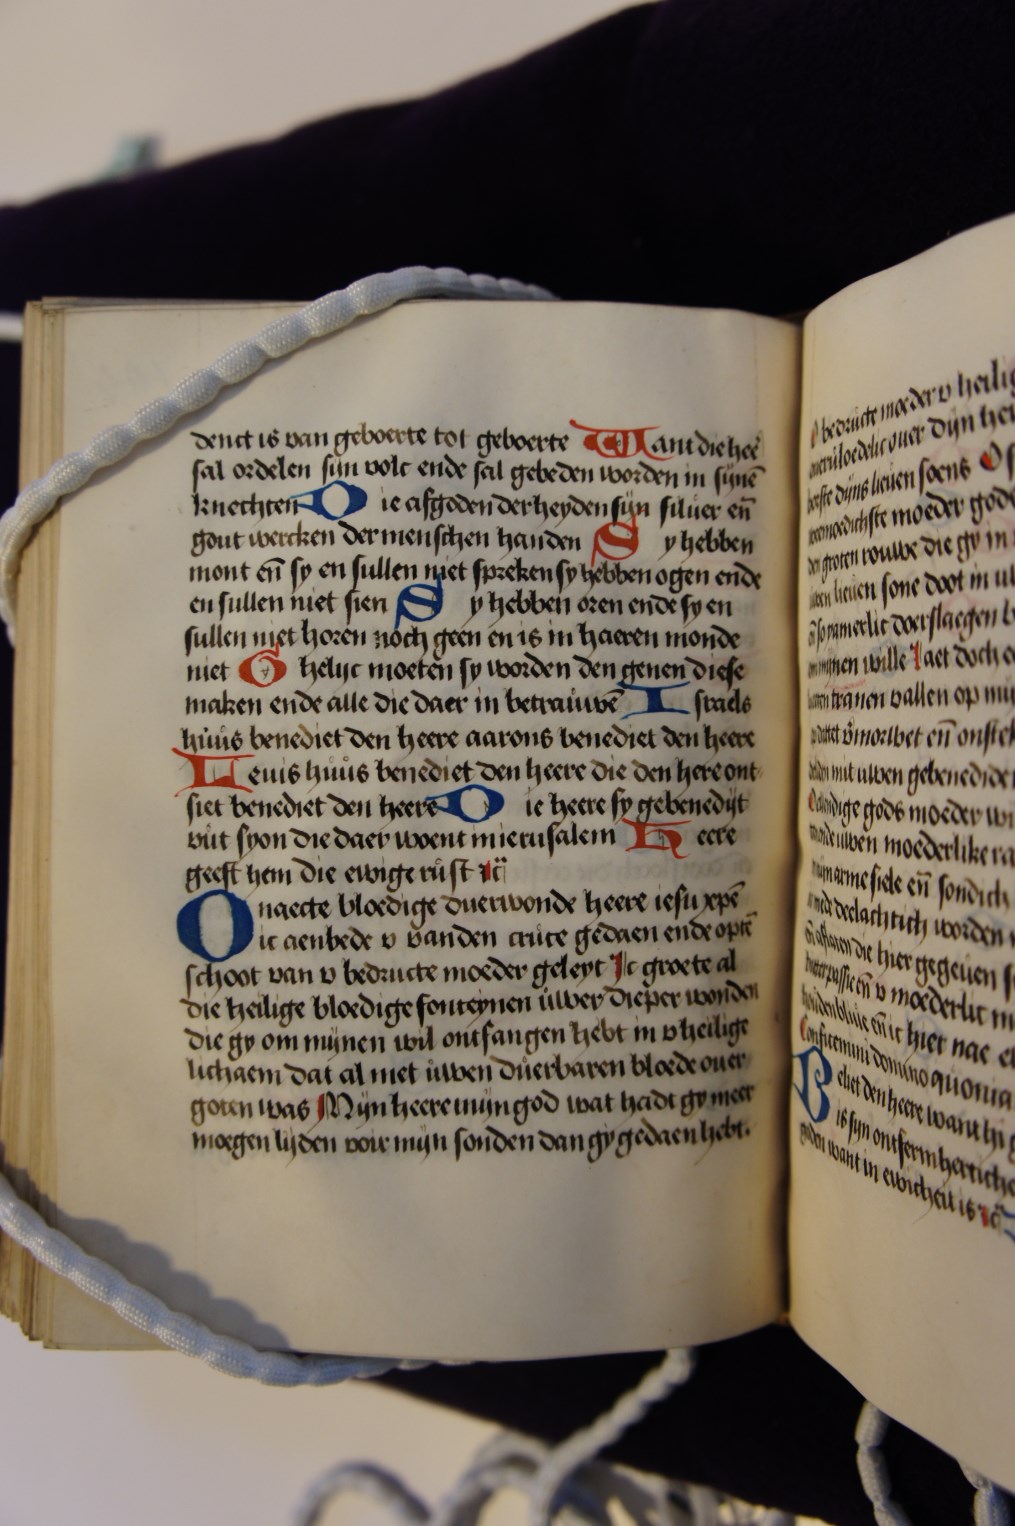 denct is van geboerte tot geboerte Want die heē
sal ordelen sijn volc ende sal gebeden worden in sijnē
knechten Die afgoden der heyden sijn siluer eñ
gout wercken der menschen handen Sy hebben
mont eñ sy en sullen niet spreken sy hebben ogen ende
en sullen niet sien Sy hebben oren ende sy en
sullen niet horen noch geen en is in haeren monde
niet Ghelijc moeten sy worden den genen die se
maken ende alle die daer in betrauwē Israels
huus benediet den heere aarons benediet den heere
Leuis huus benediet den heere die den here ont
siet benediet den heere Die heere sy gebenedijt
uut syon die daer woent in ierusalem Heere
geeft hem die ewige rust ꝛc̄
O naecte bloedige duerwonde heere iesu xpē
ic aenbede v vanden cruce gedaen ende optē
schoot van v bedructe moeder geleyt Ic groete al
die heilige bloedige fonteynen uwer dieper wonden
die gy om mijnen wil ontfangen hebt in v heilige
lichaem dat al met uwen duerbaren bloede ouer
goten was Mijn heere mijn god wat hadt gy meer
moegen lijden voir mijn sonden dan gy gedaen hebt.
O bedructe moeder v heilig
ouer dijn hei
borste dijns lieuen soens O
moeder gods
den groten rouwe die gy in
uwen lieuen sone doot in u
eñ so iamerlic doerslaegen
om mijnen wille Laet doch
tranen vallen op mij
eñ onstek
mit uwen gebenedide
gods moeder
uwen moederlike
arme siele eñ sondich
deelachtich worden
die hier gegeuen
passie eñ v moederlic
eñ ic hier nae
Confitemini domino quonia
Beliet den heere want hi
is sijn ontfermherticheit
want in ewicheit is ꝛc̄